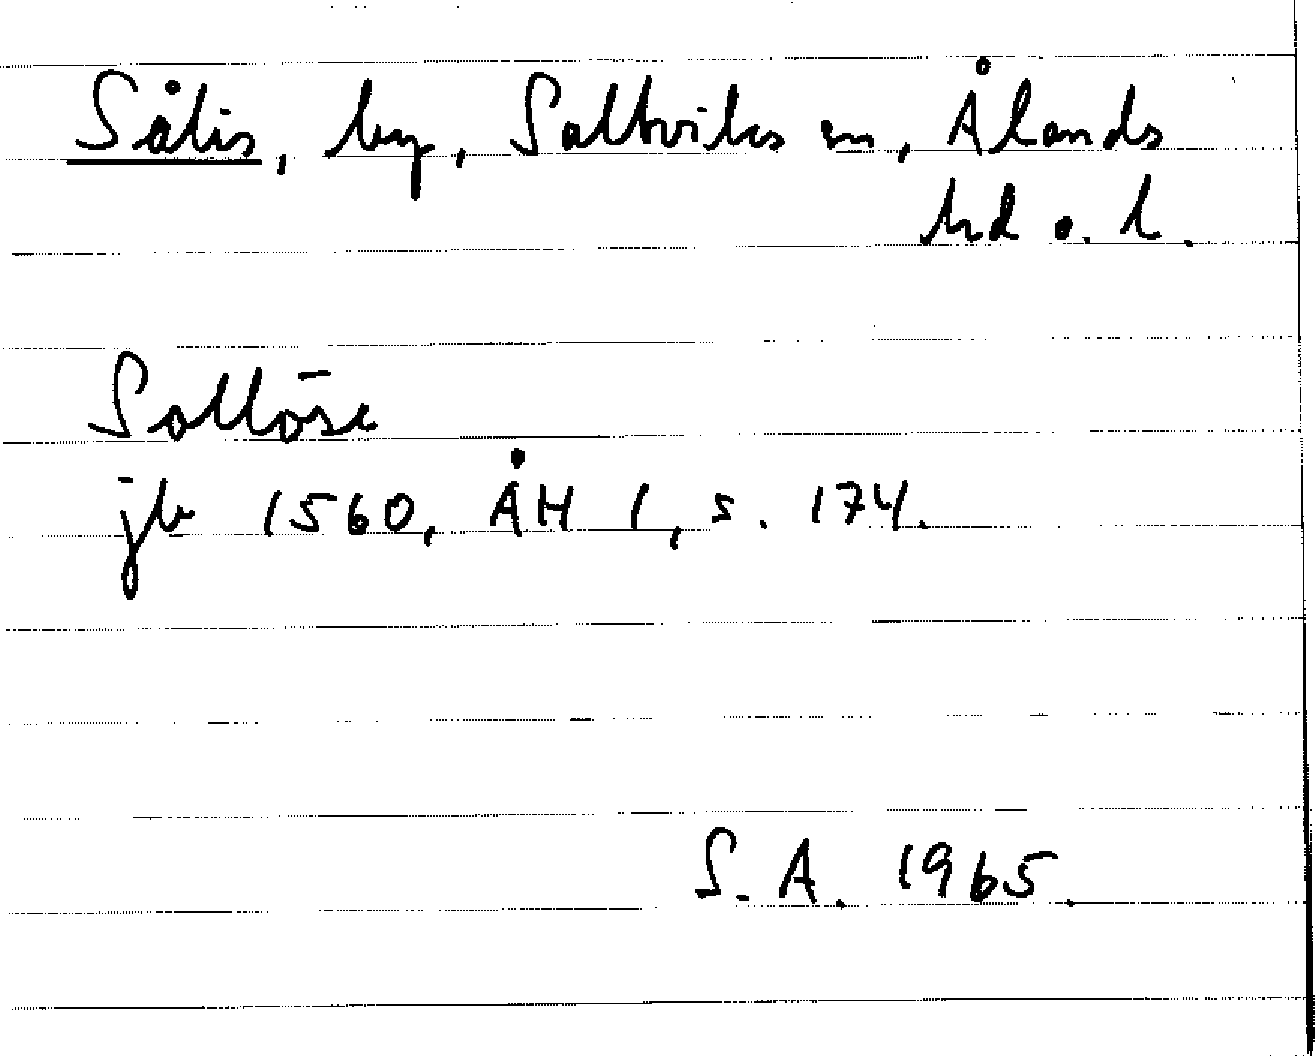 Sålis, by, Saltviks sn, Ålands
hd o. l.
Sollöse
jb 1560, ÅH 1, s. 174.
S. A. 1965.